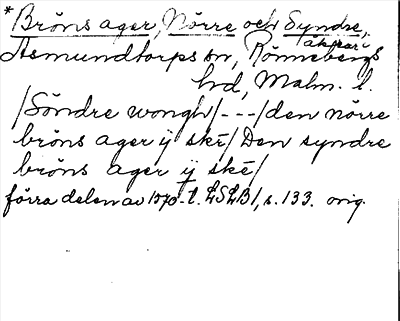 *Bröns ager, Nörre och Syndre,
åkrar i
Asmundtorps sn, Rönnebergs
hrd, Malm. l.
/Söndre wongh/---/den nörre
bröns ager ÿ skē/Den syndre
bröns ager ÿ skē/
förra delen av 1570-t. LSLB1, s. 133. orig.